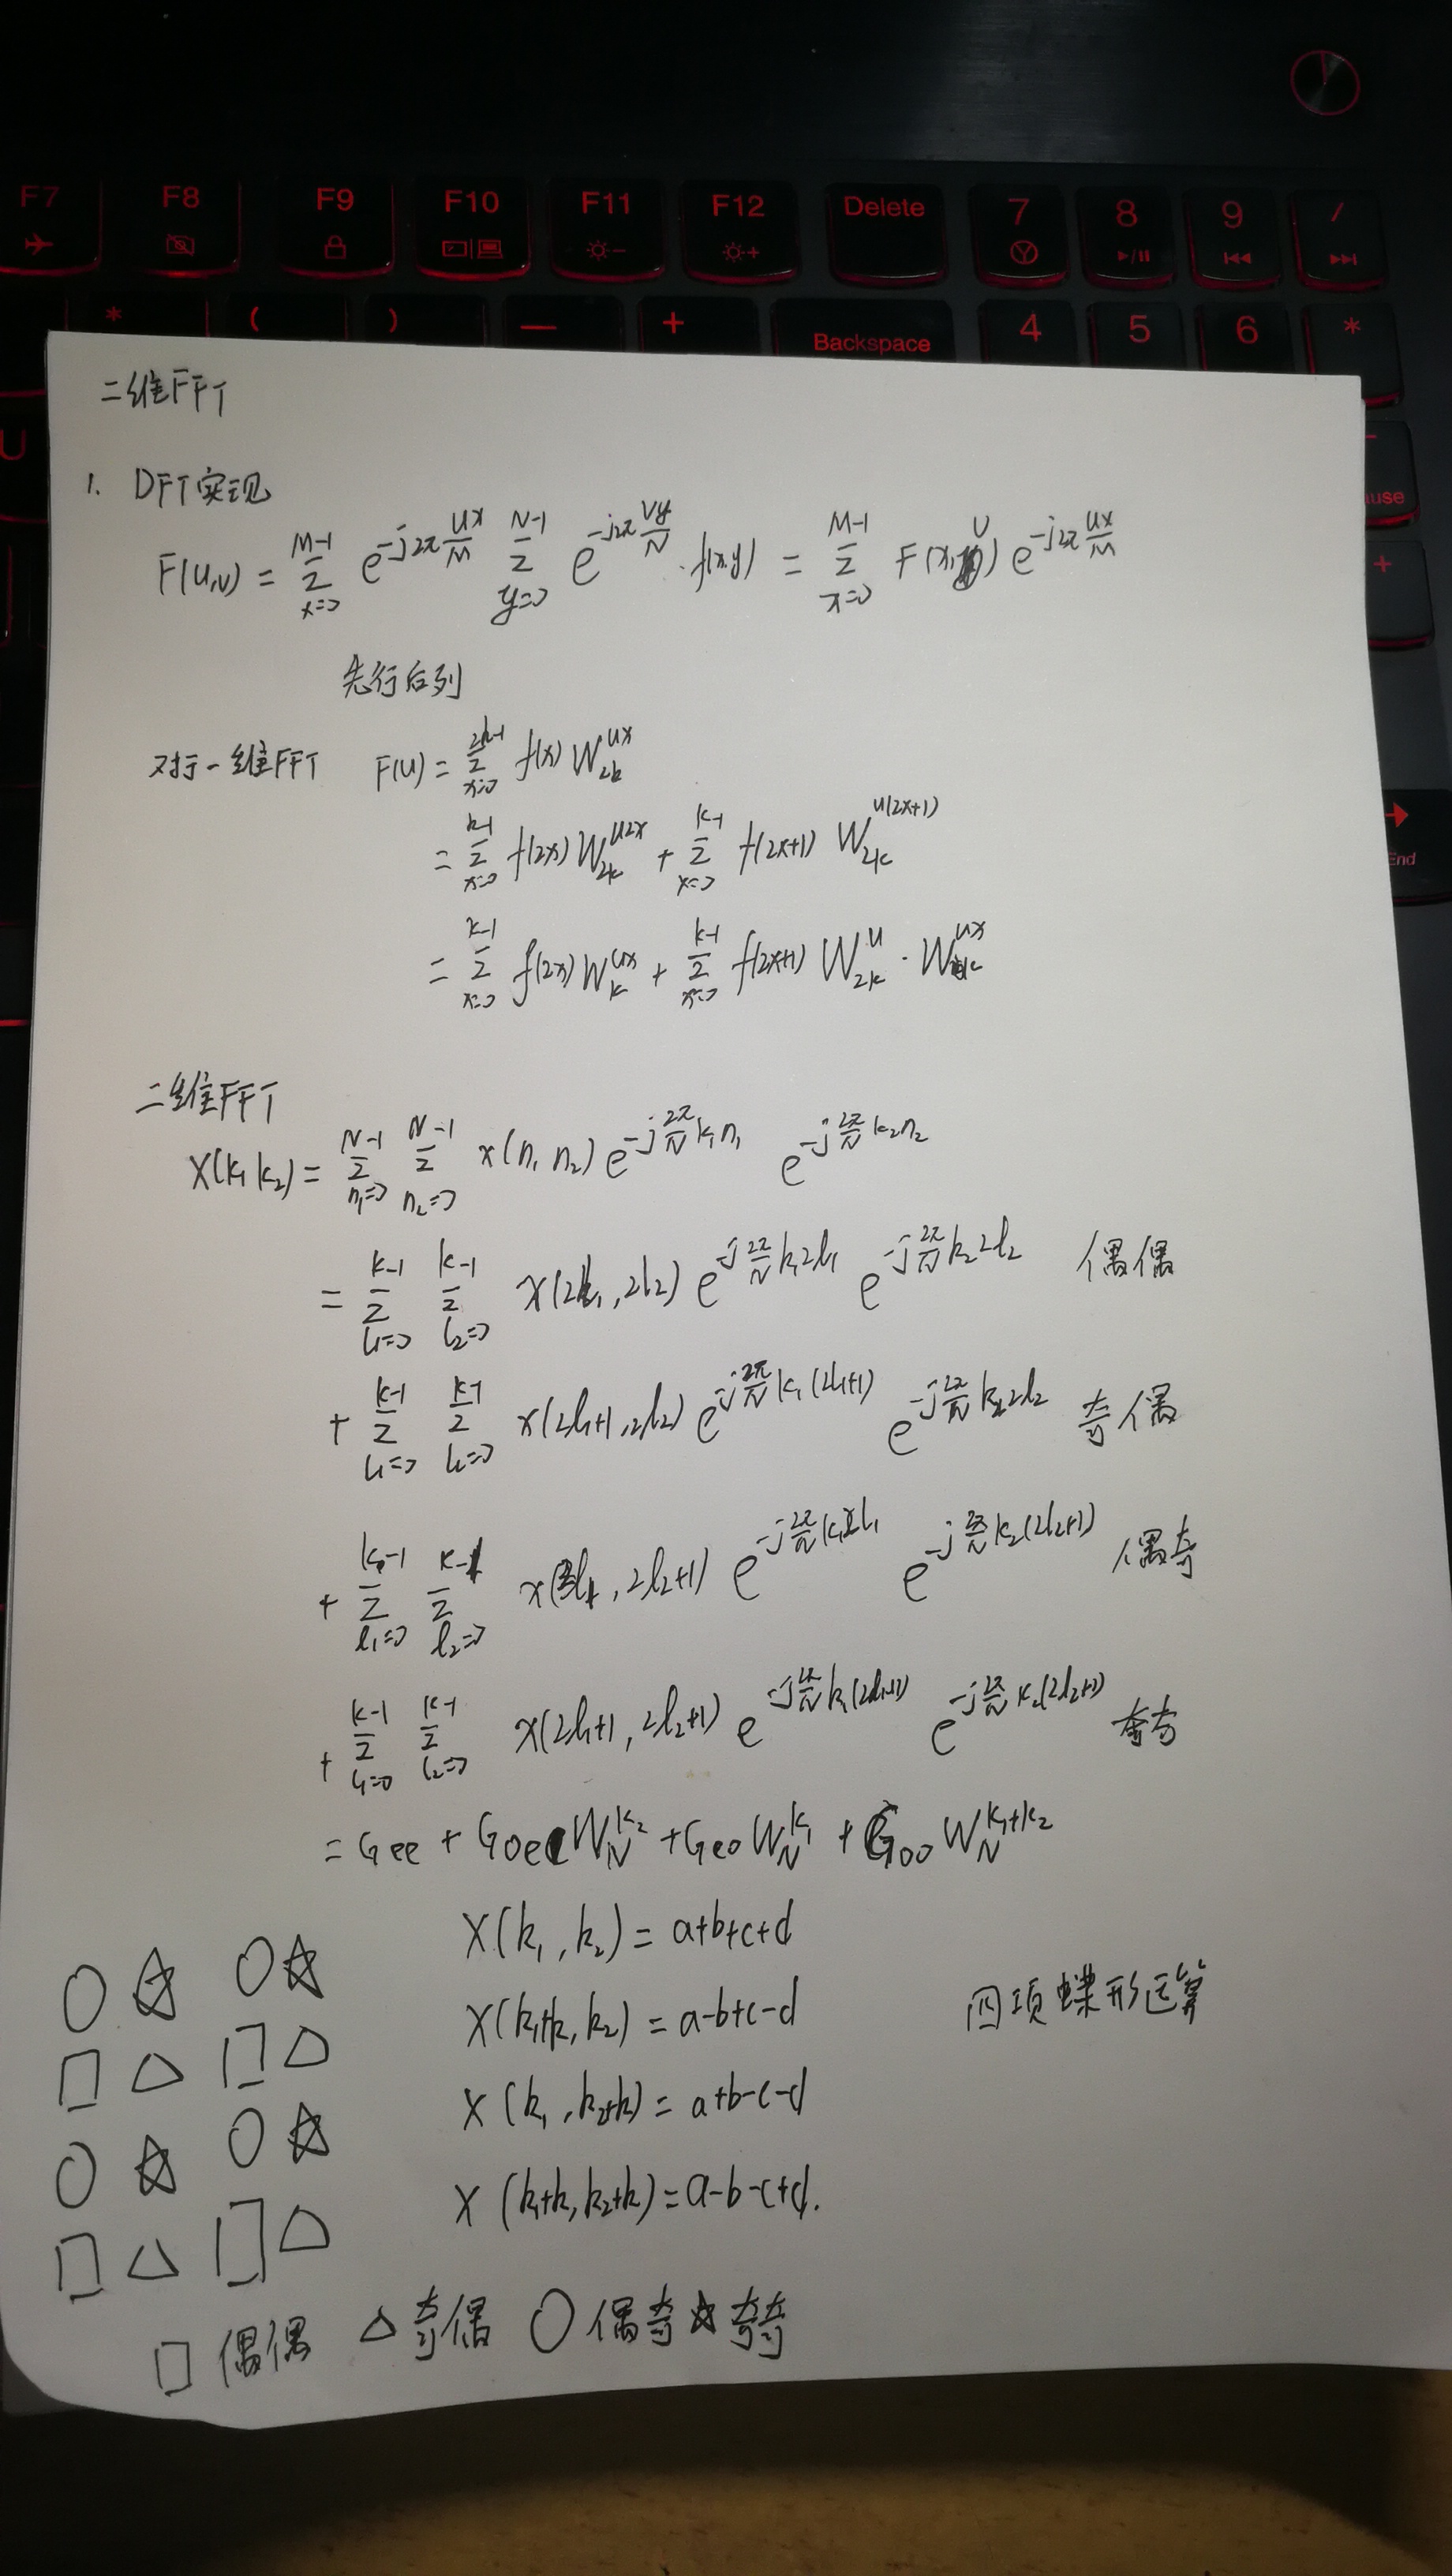 F7 F8 F9 F10 F11 F12 Delete 7 8 9 /
* ( ) — + Backspace 4 5 6 *
U
ause
+
End
二维FFT
1. DFT实现
F(u,v) = Σ_{x=0}^{M-1} e^{-j2π ux/M} Σ_{y=0}^{N-1} e^{-j2π vy/N} · f(x,y) = Σ_{x=0}^{M-1} F(x,v) e^{-j2π ux/M}
先行后列
对于一维FFT F(u) = Σ_{x=0}^{2k-1} f(x) W_{2k}^{ux}
= Σ_{x=0}^{k-1} f(2x) W_{2k}^{u2x} + Σ_{x=0}^{k-1} f(2x+1) W_{2k}^{u(2x+1)}
= Σ_{x=0}^{k-1} f(2x) W_{k}^{ux} + Σ_{x=0}^{k-1} f(2x+1) W_{2k}^{u} · W_{k}^{ux}
二维FFT
X(k₁ k₂) = Σ_{n₁=0}^{N-1} Σ_{n₂=0}^{N-1} x(n₁ n₂) e^{-j 2π/N k₁n₁} e^{-j 2π/N k₂n₂}
= Σ_{l₁=0}^{k-1} Σ_{l₂=0}^{k-1} x(2l₁, 2l₂) e^{-j 2π/N k₁2l₁} e^{-j 2π/N k₂2l₂} 偶偶
+ Σ_{l₁=0}^{k-1} Σ_{l₂=0}^{k-1} x(2l₁+1, 2l₂) e^{-j 2π/N k₁(2l₁+1)} e^{-j 2π/N k₂2l₂} 奇偶
+ Σ_{l₁=0}^{k-1} Σ_{l₂=0}^{k-1} x(2l₁, 2l₂+1) e^{-j 2π/N k₁2l₁} e^{-j 2π/N k₂(2l₂+1)} 偶奇
+ Σ_{l₁=0}^{k-1} Σ_{l₂=0}^{k-1} x(2l₁+1, 2l₂+1) e^{-j 2π/N k₁(2l₁+1)} e^{-j 2π/N k₂(2l₂+1)} 奇奇
= Gee + Goe W_N^{k₂} + Geo W_N^{k₁} + Goo W_N^{k₁+k₂}
X(k₁, k₂) = a+b+c+d
X(k₁+k, k₂) = a-b+c-d 四项蝶形运算
X(k₁, k₂+k) = a+b-c-d
X(k₁+k, k₂+k) = a-b-c+d.
□ 偶偶 △ 奇偶 ○ 偶奇 ☆ 奇奇